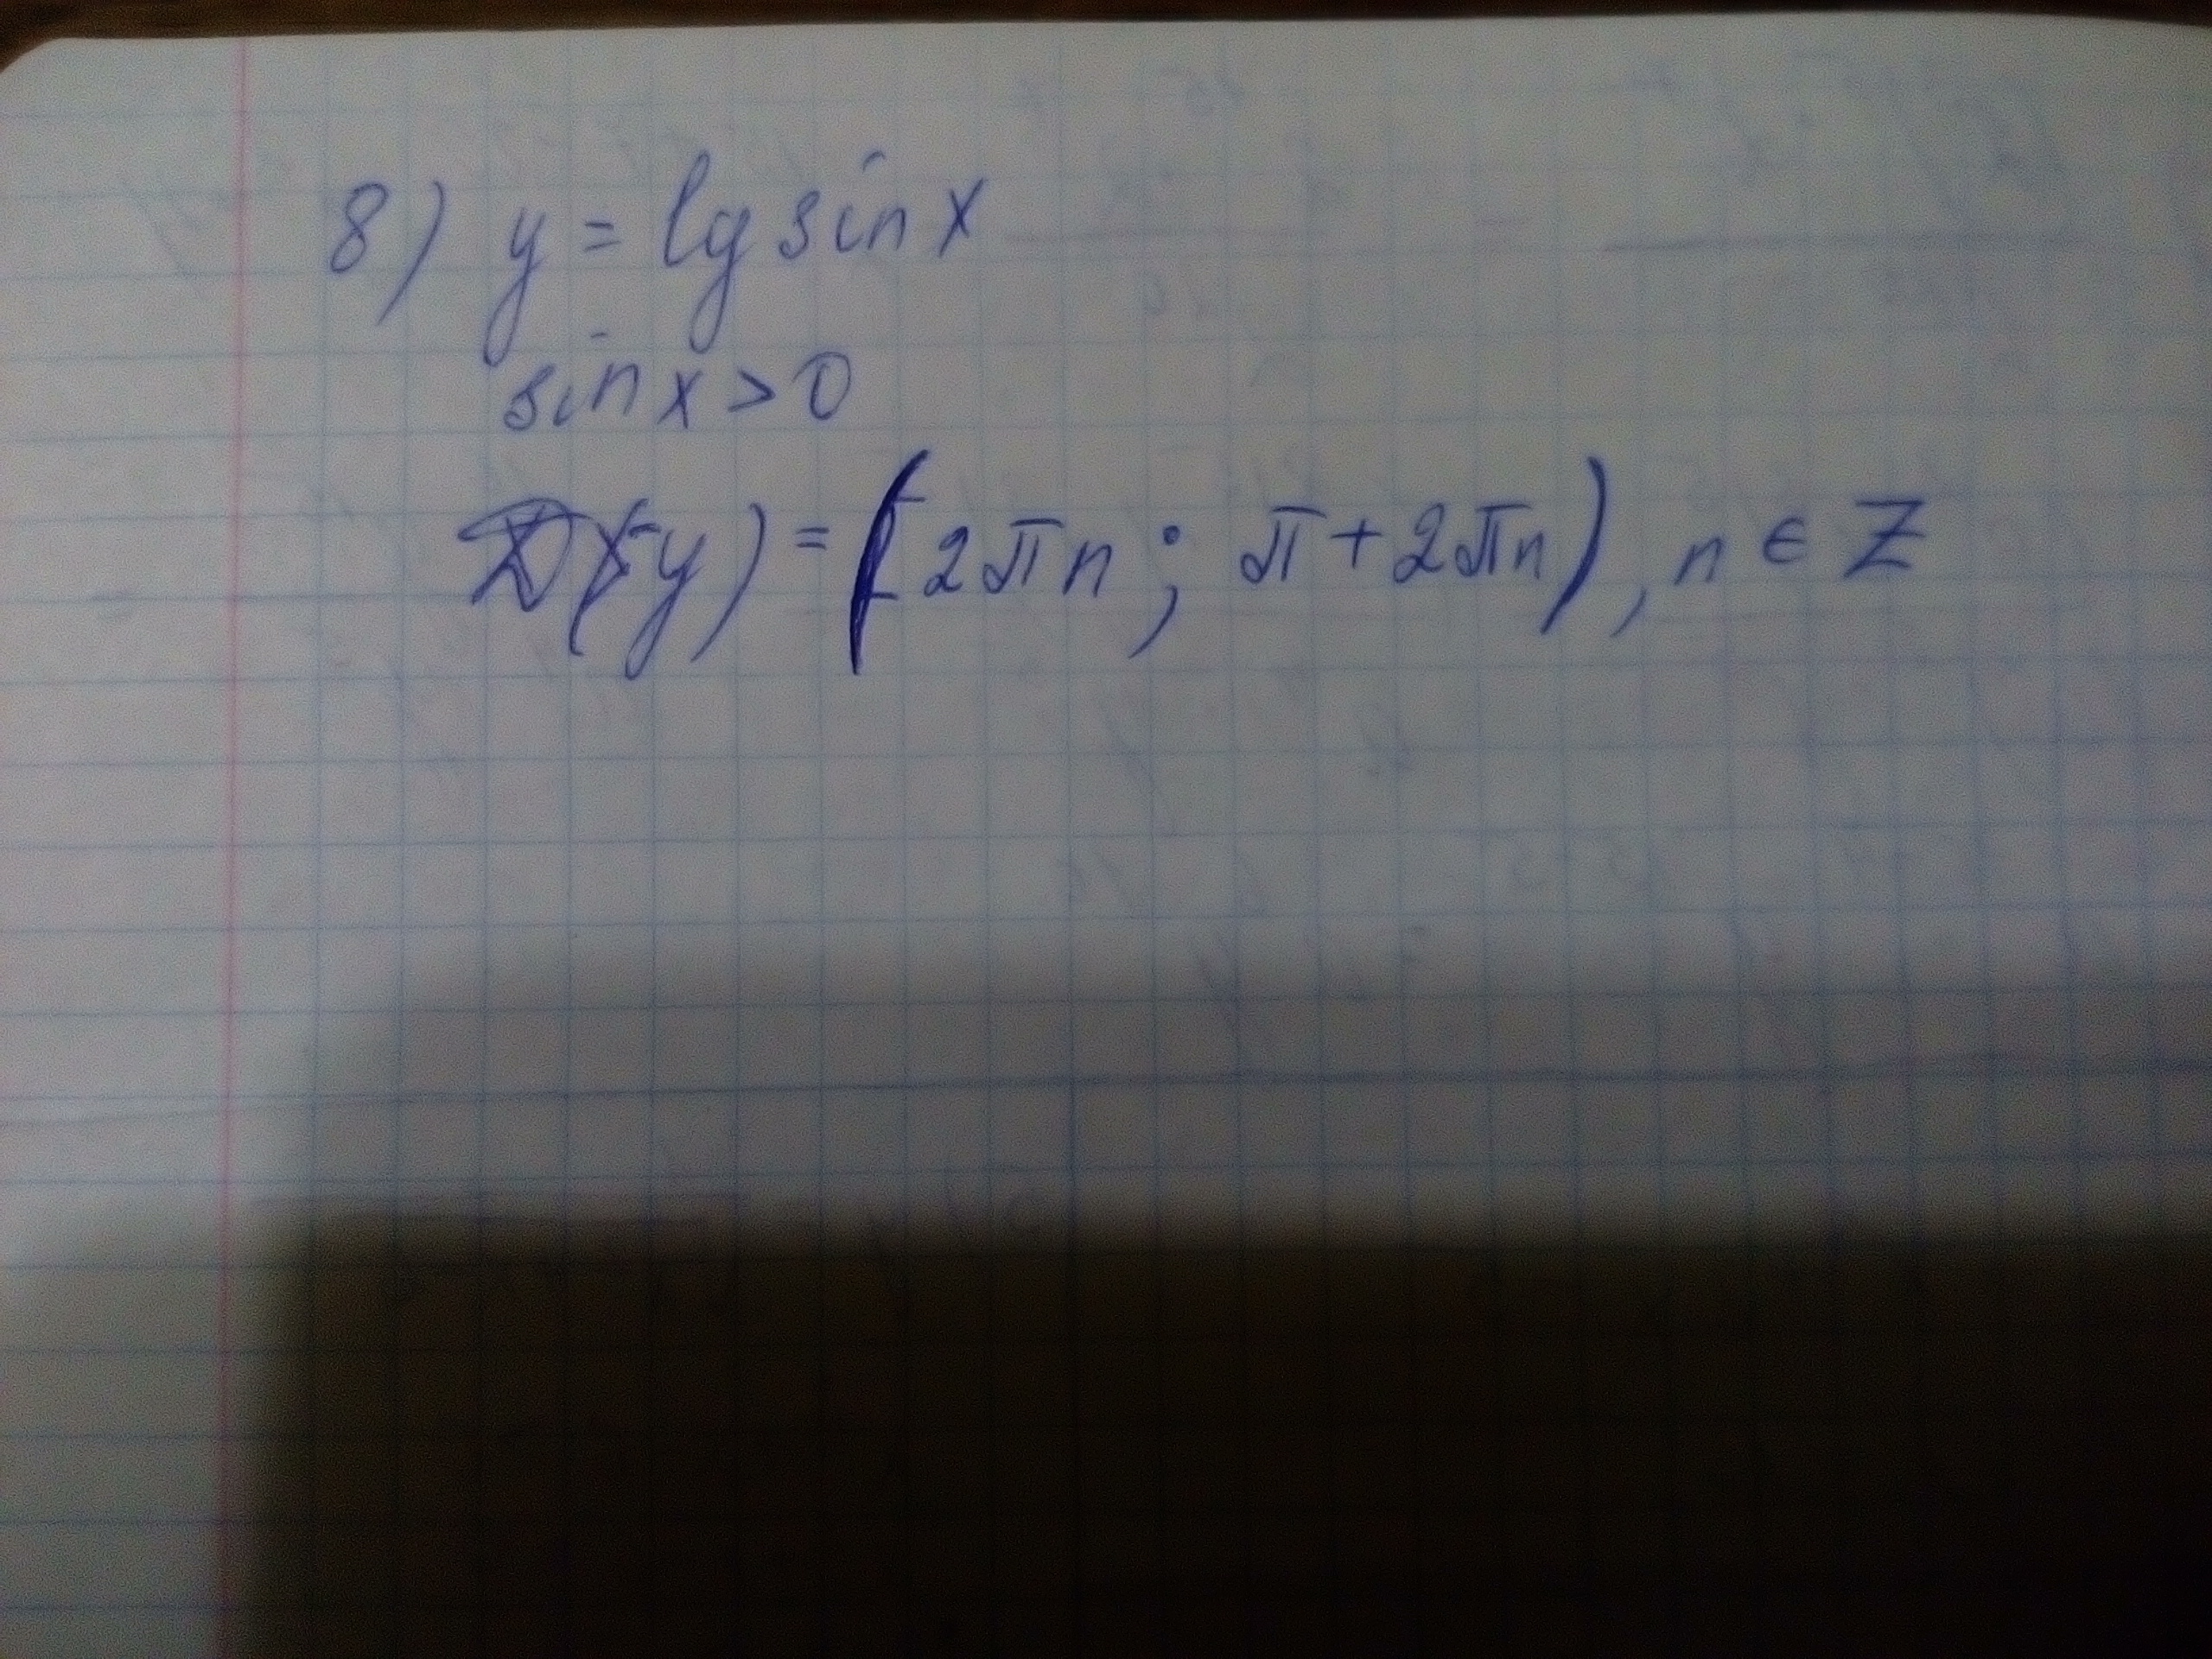 8) y = lg sin x
sin x > 0
D(y) = (2πn; π+2πn), n ∈ Z